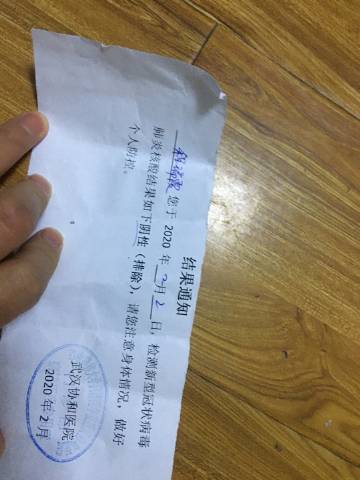 结果通知
您于 2020 年 2 月 2 日，检测新型冠状病毒
肺炎核酸结果如下阴性（排除），请您注意身体情况，做好
个人防控。
武汉协和医院
2020 年 2 月